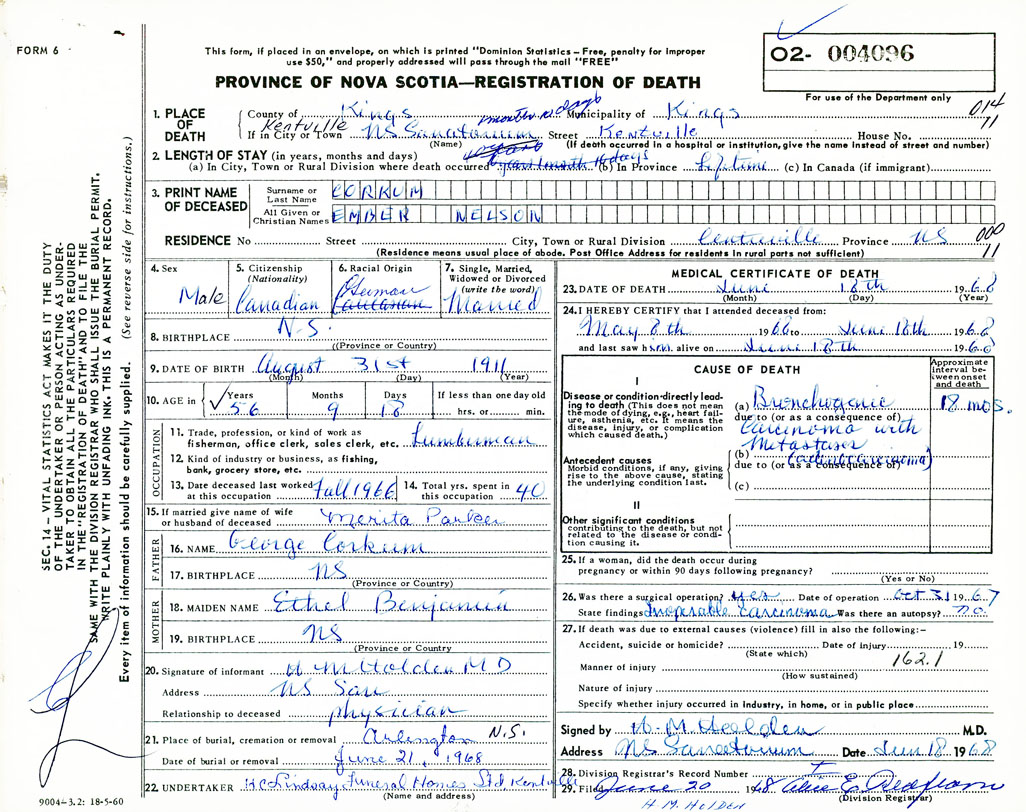 FORM 6
This form, if placed in an envelope, on which is printed "Dominion Statistics – Free, penalty for improper
use $50," and properly addressed will pass through the mail "FREE"
PROVINCE OF NOVA SCOTIA—REGISTRATION OF DEATH
O2- 004096
For use of the Department only
014
11
1. PLACE OF DEATH
County of Kings Municipality of Kings
Kentville
If in City or Town NS Sanatorium Street Kentville House No.
(Name) (If death occurred in a hospital or institution, give the name instead of street and number)
2. LENGTH OF STAY (in years, months and days)
(a) In City, Town or Rural Division where death occurred (b) In Province Lifetime (c) In Canada (if immigrant)
3. PRINT NAME OF DECEASED
Surname or Last Name CORKUM
All Given or Christian Names EMBER NELSON
RESIDENCE No Street City, Town or Rural Division Centreville Province NS
000
11
(Residence means usual place of abode. Post Office Address for residents in rural parts not sufficient)
4. Sex Male
5. Citizenship (Nationality) Canadian
6. Racial Origin German
7. Single, Married, Widowed or Divorced (write the word) Married
8. BIRTHPLACE N.S.
((Province or Country)
9. DATE OF BIRTH August 31st 1911
(Month) (Day) (Year)
10. AGE in Years 56 Months 9 Days 18 If less than one day old hrs. or min.
OCCUPATION
11. Trade, profession, or kind of work as fisherman, office clerk, sales clerk, etc. Lumberman
12. Kind of industry or business, as fishing, bank, grocery store, etc.
13. Date deceased last worked at this occupation Fall 1966
14. Total yrs. spent in this occupation 40
15. If married give name of wife or husband of deceased Merita Parker
FATHER
16. NAME George Corkum
17. BIRTHPLACE NS
(Province or Country)
MOTHER
18. MAIDEN NAME Ethel Benjamin
19. BIRTHPLACE NS
(Province or Country)
20. Signature of informant H M Holden MD
Address NS San
Relationship to deceased physician
21. Place of burial, cremation or removal Arlington N.S.
Date of burial or removal June 21, 1968
22. UNDERTAKER H C Lindsay Funeral Homes Ltd Kentville
(Name and address)
9004–3.2: 18-5-60
MEDICAL CERTIFICATE OF DEATH
23. DATE OF DEATH June 18th 1968
(Month) (Day) (Year)
24. I HEREBY CERTIFY that I attended deceased from:
May 8th 1968 to June 18th 1968
and last saw him alive on June 18th 1968
CAUSE OF DEATH
Approximate interval between onset and death
I
Disease or condition directly leading to death (This does not mean the mode of dying, e.g., heart failure, asthenia, etc. It means the disease, injury, or complication which caused death.)
(a) Bronchogenic 18 mos.
due to (or as a consequence of)
Carcinoma with
Metastases
Antecedent causes
Morbid conditions, if any, giving rise to the above cause, stating the underlying condition last.
(b)
due to (or as a consequence of)
(c)
II
Other significant conditions contributing to the death, but not related to the disease or condition causing it.
25. If a woman, did the death occur during pregnancy or within 90 days following pregnancy?
(Yes or No)
26. Was there a surgical operation? yes Date of operation Oct 31 1967
State findings Inoperable Carcinoma Was there an autopsy? no
27. If death was due to external causes (violence) fill in also the following:–
Accident, suicide or homicide? Date of injury 19
(State which)
162.1
Manner of injury
(How sustained)
Nature of injury
Specify whether injury occurred in industry, in home, or in public place
Signed by H. M. Holden M.D.
Address NS Sanatorium Date Jun 18 1968
28. Division Registrar's Record Number
29. Filed June 20 1968
(Division Registrar)
H M HOLDEN
SEC. 14 – VITAL STATISTICS ACT MAKES IT THE DUTY
OF THE UNDERTAKER OR PERSON ACTING AS UNDER-
TAKER TO OBTAIN ALL THE PARTICULARS REQUIRED
IN THE "REGISTRATION OF DEATH" AND TO FILE THE
SAME WITH THE DIVISION REGISTRAR WHO SHALL ISSUE THE BURIAL PERMIT.
WRITE PLAINLY WITH UNFADING INK. THIS IS A PERMANENT RECORD.
Every item of information should be carefully supplied. (See reverse side for instructions.)